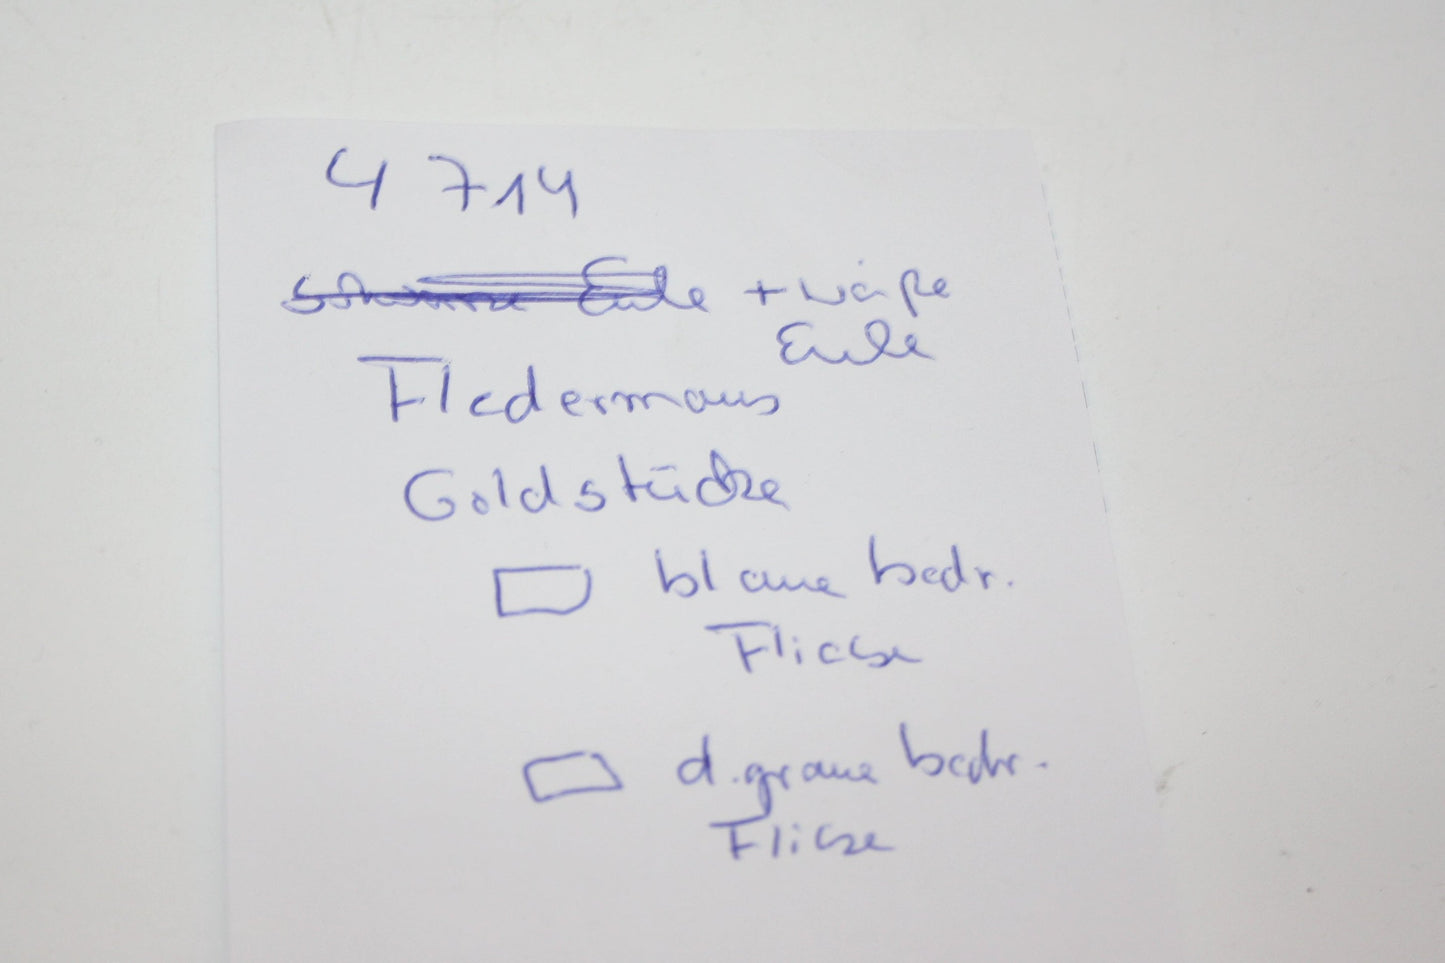 4 714
schwarze Eule + weiße
Eule
Fledermaus
Goldstücke
blaue bedr.
Fliese
d. graue bedr.
Fliese